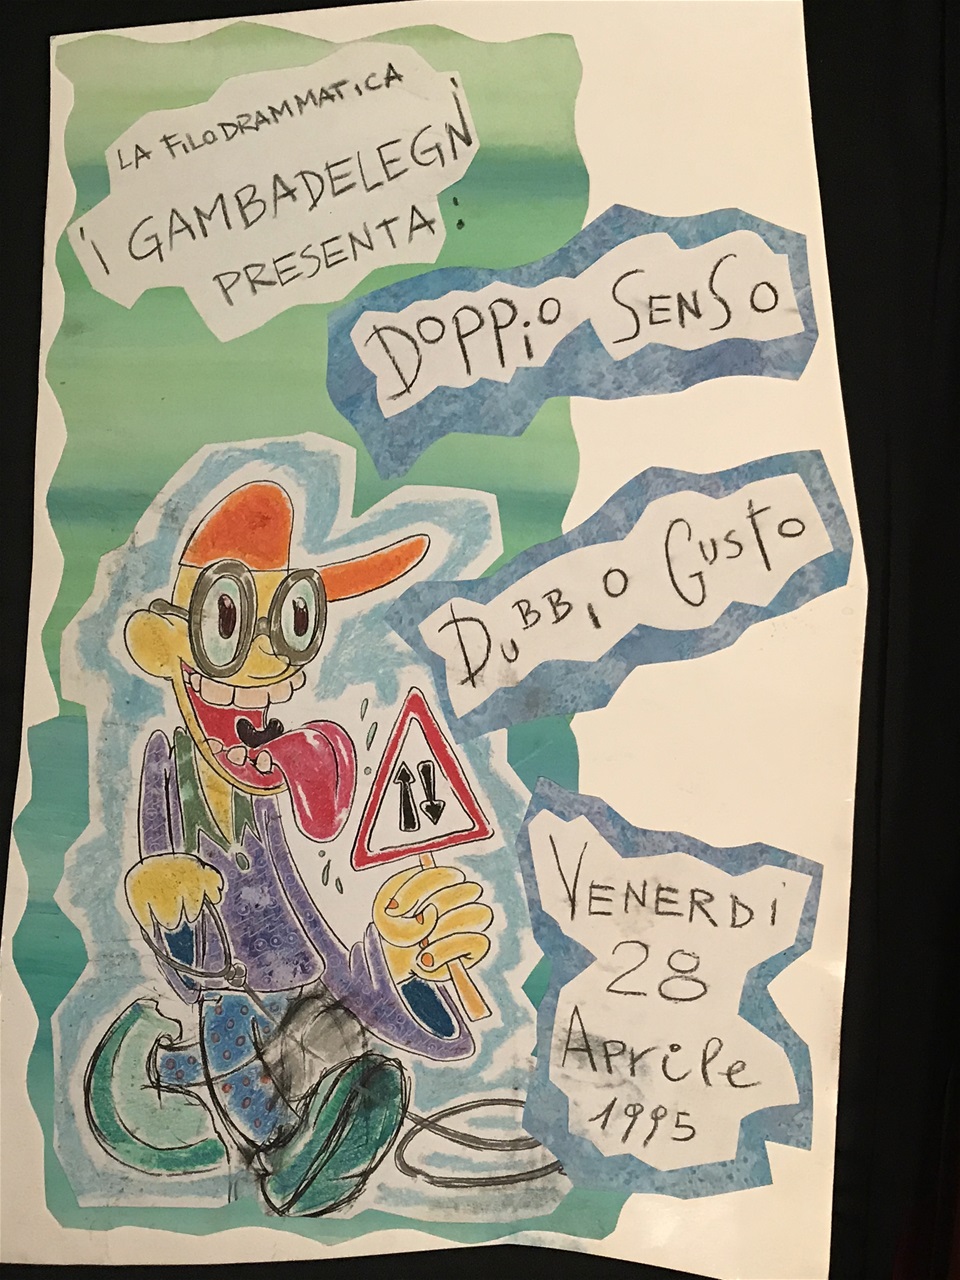 LA FiLODRAMMATiCA
i GAMBADELEGNi
PRESENTA:
DOPPiO SENSO
DUBBiO GUSTO
VENERDi
28
APRiLe
1995